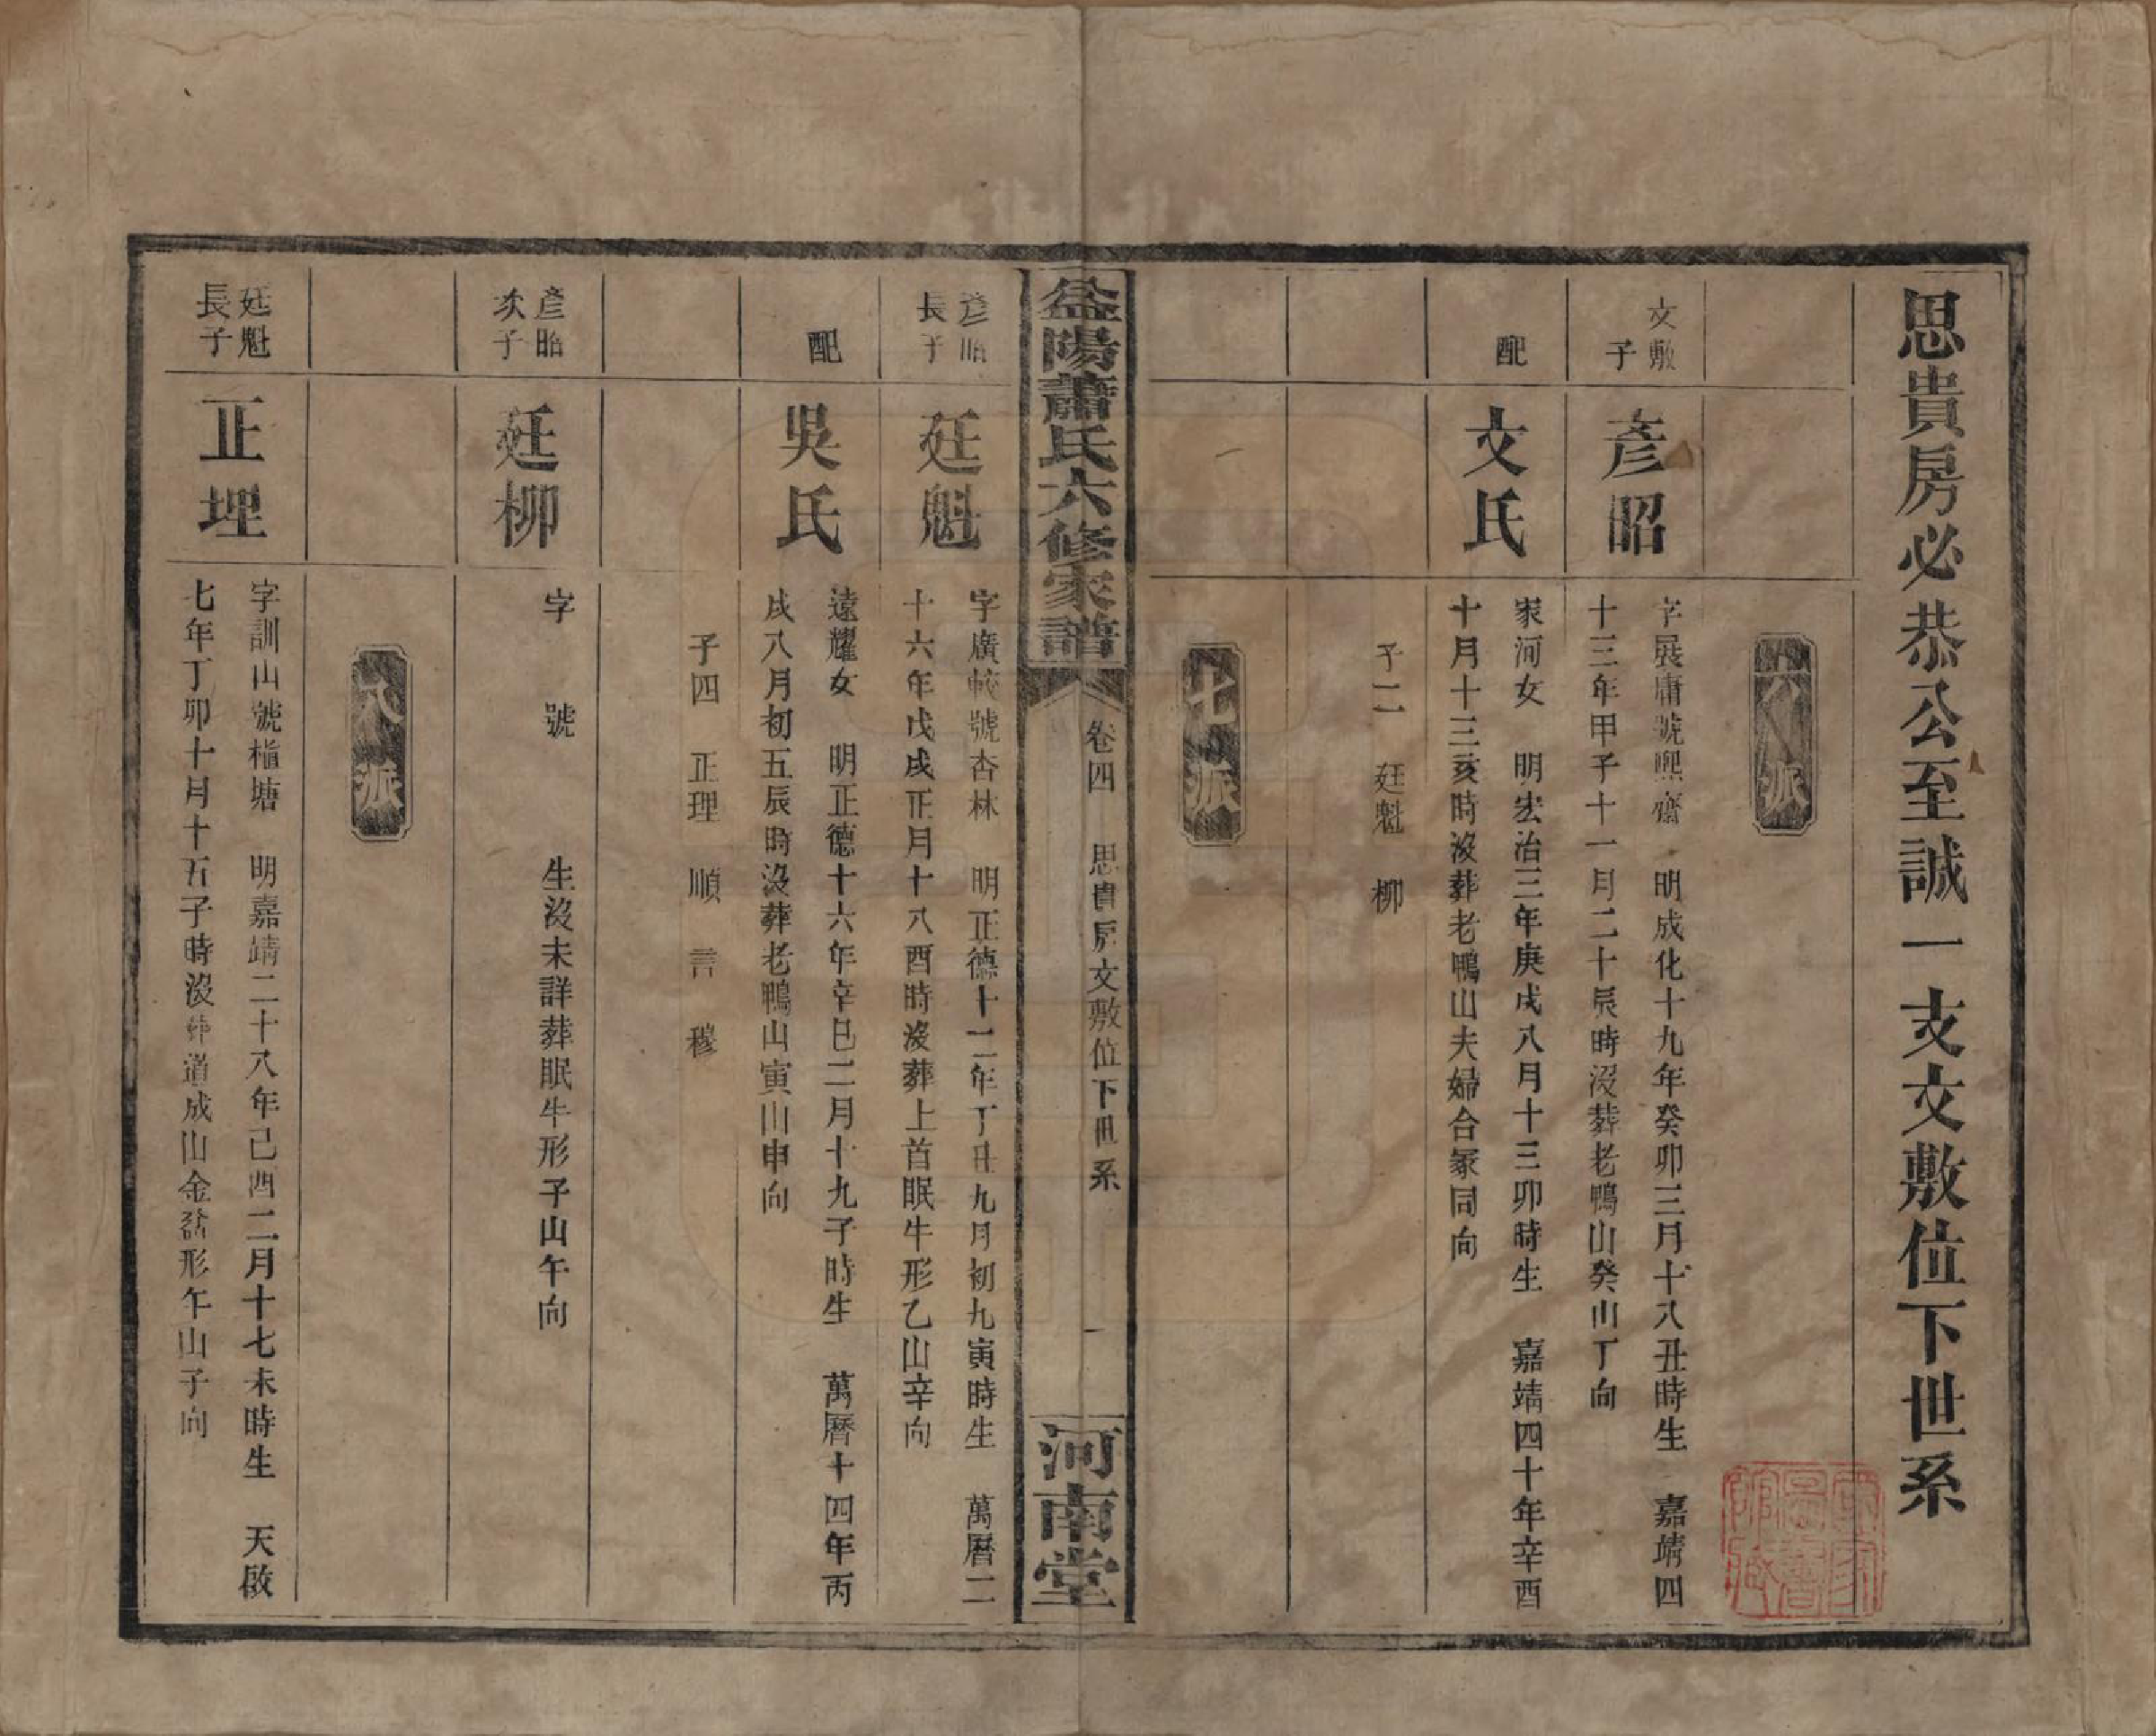 思貴房必恭公至誠一支文敷位下世系
六派
文敷
子
彥昭
字展庸號熙齋 明成化十九年癸卯三月十八丑時生 嘉靖四
十三年甲子十一月二十辰時沒葬老鴨山癸山丁向
配
文氏
家河女 明宏治三年庚戌八月十三卯時生 嘉靖四十年辛酉
十月十三亥時沒葬老鴨山夫婦合冢同向
子二 廷魁 柳
七派
益陽蕭氏六修家譜
卷四 思貴房文敷位下世系
一
河南堂
彥昭
長子
廷魁
字廣 號杏林 明正德十二年丁丑九月初九寅時生 萬曆二
十六年戊戌正月十八酉時沒葬上首眠牛形乙山辛向
配
吳氏
遠耀女 明正德十六年辛巳二月十九子時生 萬曆十四年丙
戌八月初五辰時沒葬老鴨山寅山申向
子四 正理 順 言 穆
彥昭
次子
廷柳
字 號 生沒未詳葬眠牛形子山午向
八派
廷魁
長子
正理
字訓山號楷塘 明嘉靖二十八年己酉二月十七未時生 天啟
七年丁卯十月十五子時沒葬道成山金盆形午山子向